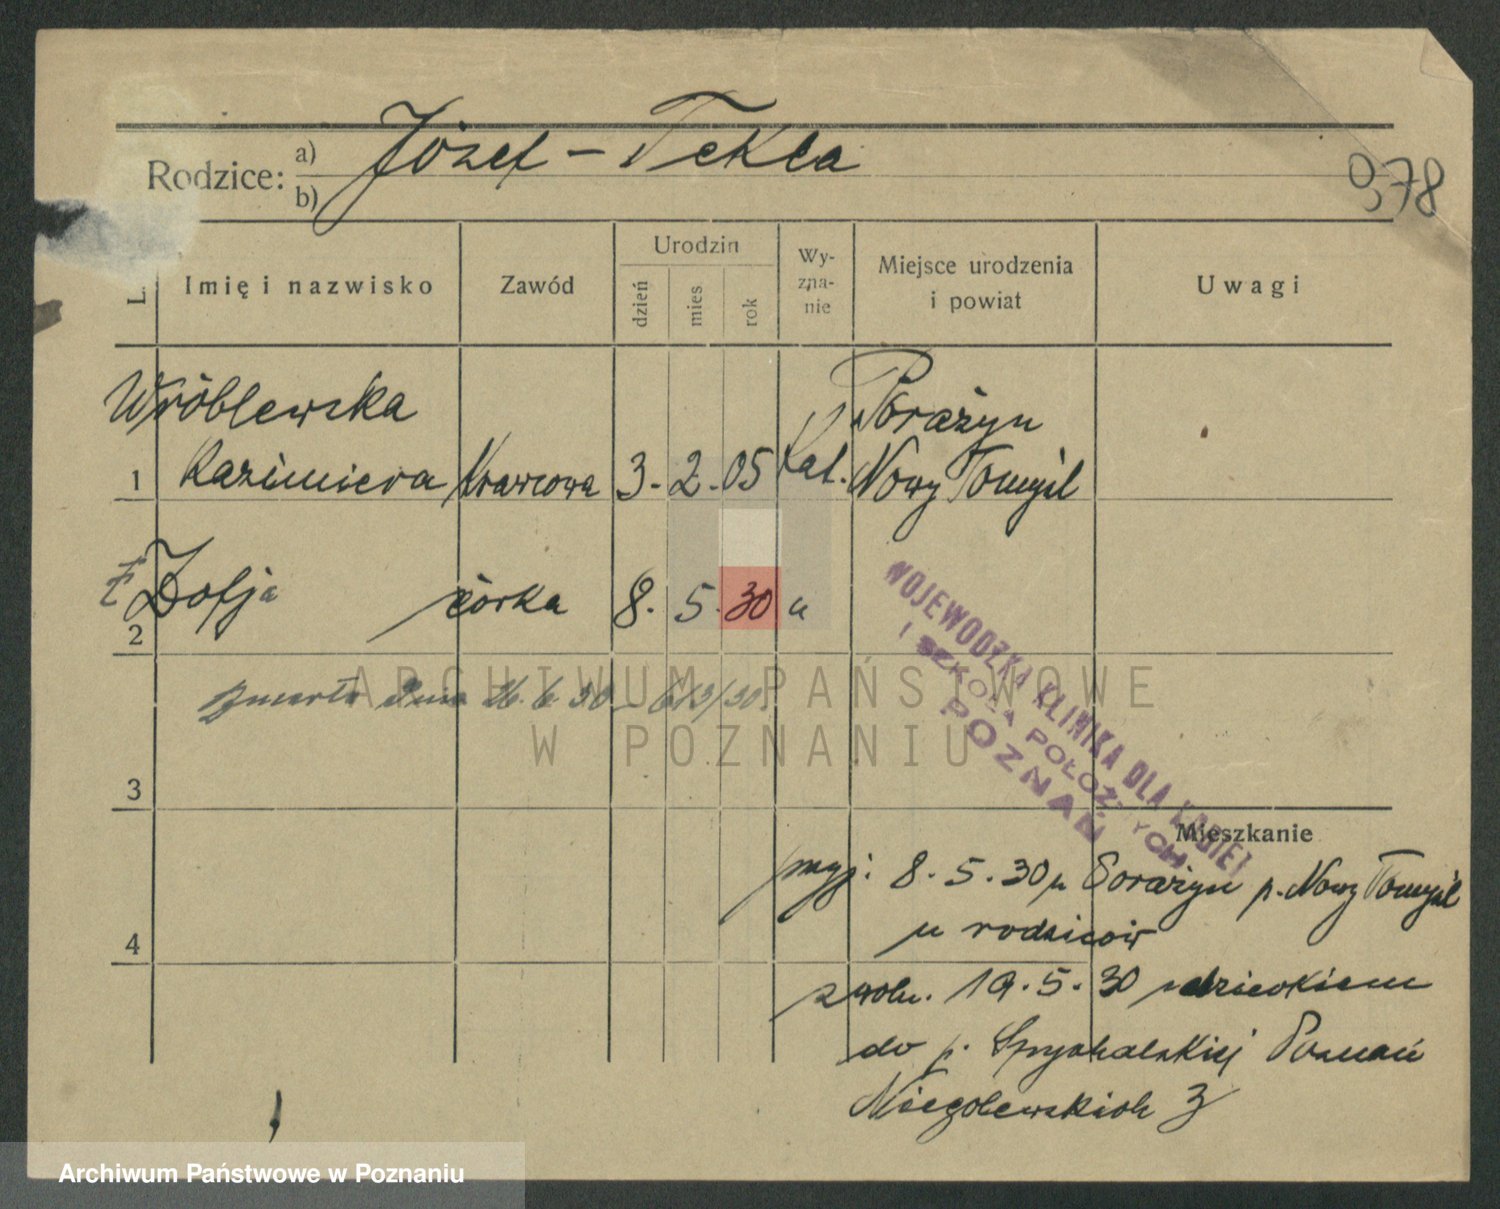 Józef - Tekla
Rodzice: a) b)
978
L.
Imię i nazwisko
Zawód
Urodzin
dzień
mies
rok
Wy-
zna-
nie
Miejsce urodzenia
i powiat
Uwagi
Wróblewska
Porażyn
1 Kazimiera Krawcowa 3. 2. 05 kat. Nowy Tomyśl
2 Zofja córka 8. 5. 30 u
zmarła dnia 26. 6 30
WOJEWÓDZKA KLINIKA DLA KOBIET
I SZKOŁA POŁOŻNYCH
POZNAŃ
ARCHIWUM PAŃSTWOWE
W POZNANIU
3
Mieszkanie
przyj: 8. 5. 30 Porażyn p. Nowy Tomyśl
u rodziców
4
zwoln. 19. 5. 30 z dzieckiem
do p. Spychalskiej Poznań
Niegolewskich 3
Archiwum Państwowe w Poznaniu